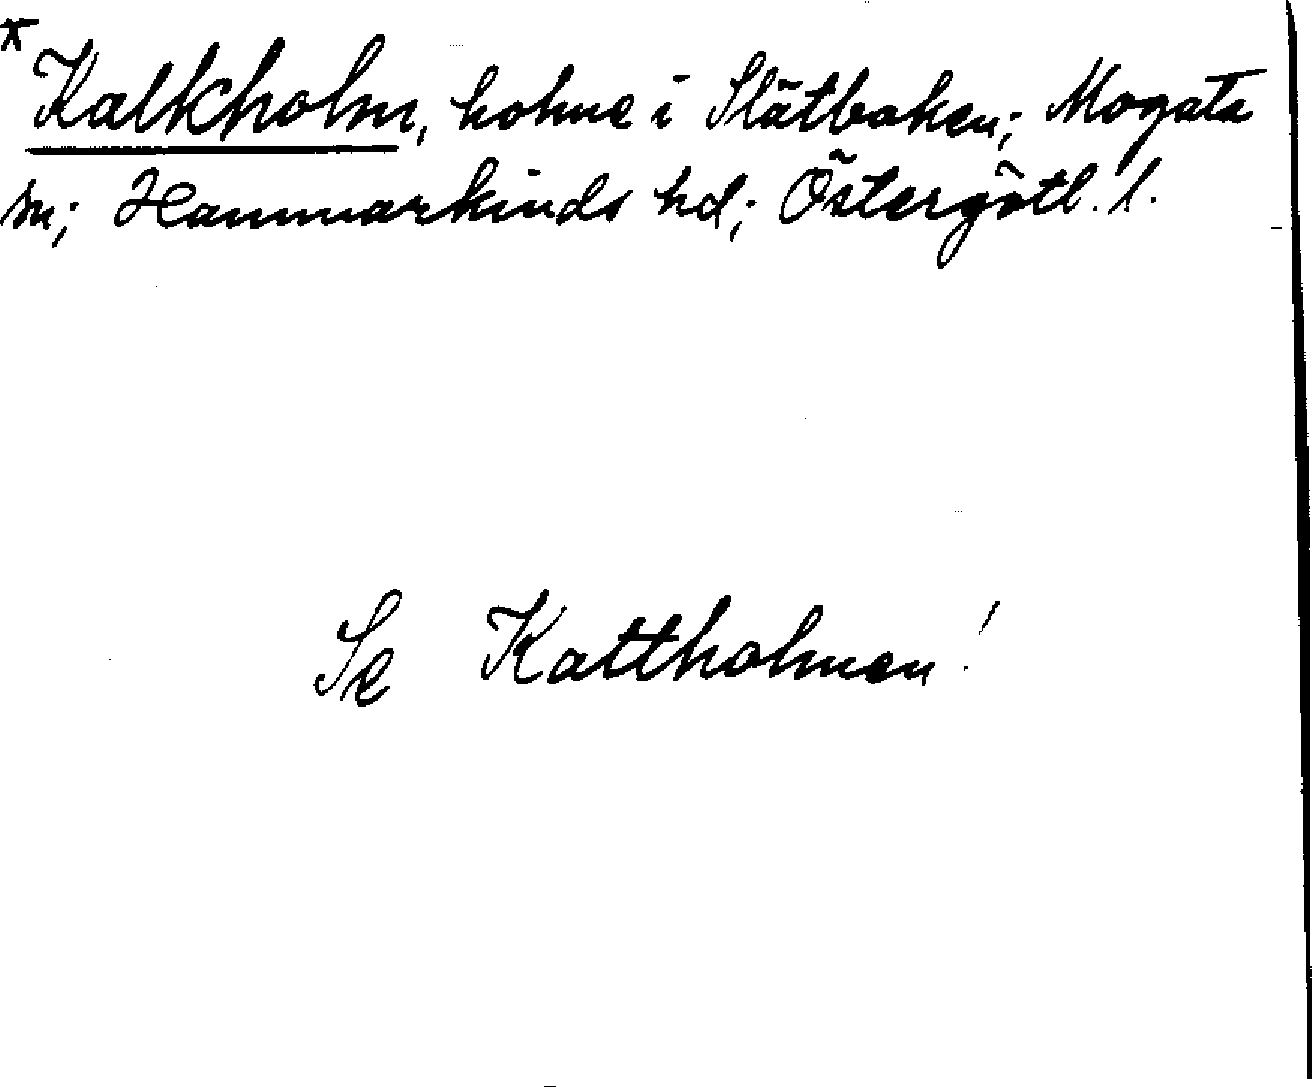 * Kalkholm, holme i Slätbaken; Mogata
sn; Hammarkinds hd; Östergötl. l.
Se Kattholmen!